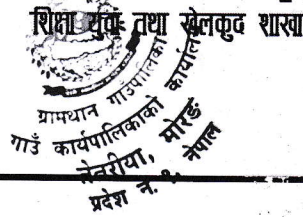 शिक्षा युवा तथा खेलकुद शाखा
ग्रामथान गाउँपालिका
गाउँ कार्यपालिकाको कार्यालय
तेतरीया, मोरङ
प्रदेश नं. १, नेपाल